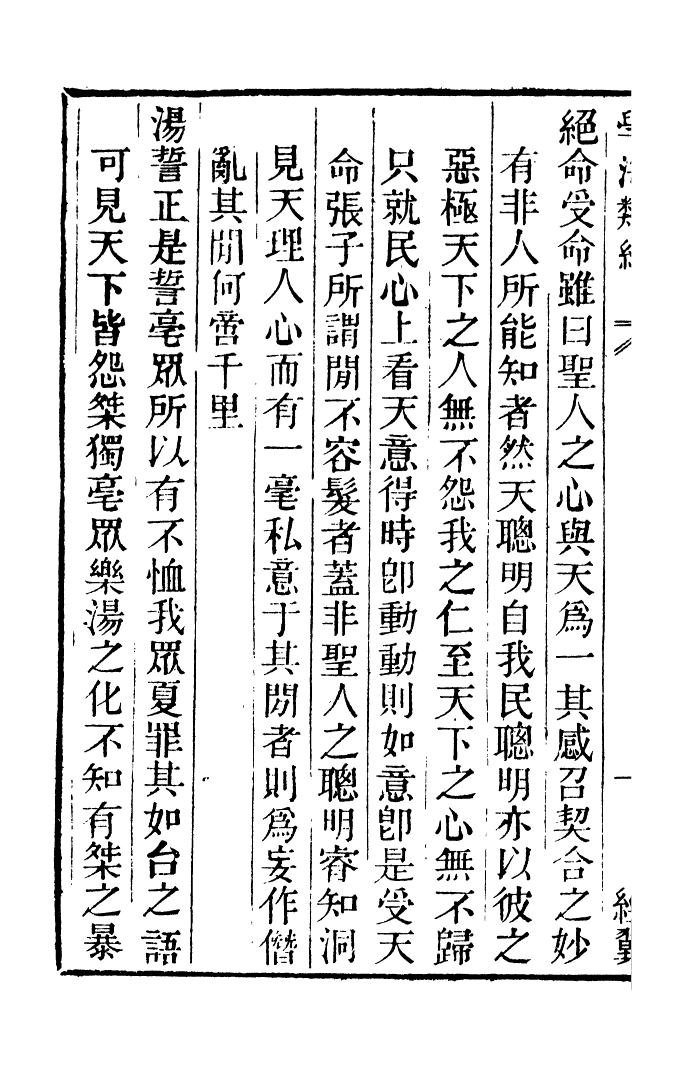 絕命受命雖曰聖人之心與天爲一其感召契合之妙
有非人所能知者然天聰明自我民聰明亦以彼之
惡極天下之人無不怨我之仁至天下之心無不歸
只就民心上看天意得時卽動動則如意卽是受天
命張子所謂閒不容髮者蓋非聖人之聰明睿知洞
見天理人心而有一毫私意于其閒者則爲妄作僭
亂其閒何啻千里
湯誓正是誓亳眾所以有不恤我眾夏罪其如台之語
可見天下皆怨桀獨亳眾樂湯之化不知有桀之暴